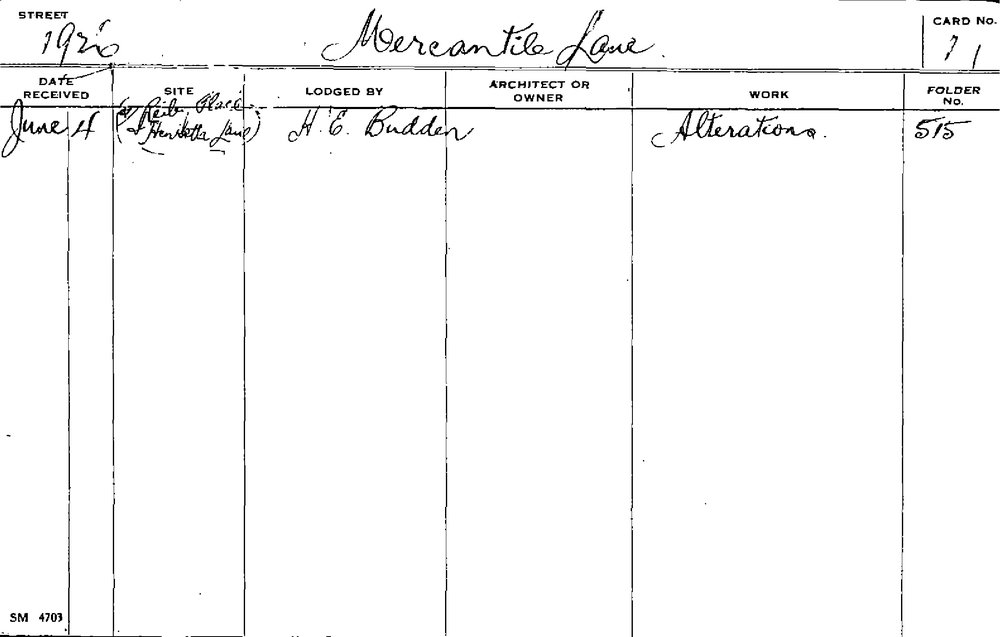 STREET
1926 Mercantile Lane CARD No.
71
DATE RECEIVED SITE LODGED BY ARCHITECT OR OWNER WORK FOLDER No.
(at Reiby Place
June 4 & Henrietta Lane) H. E. Budden Alterations. 515
SM 4703